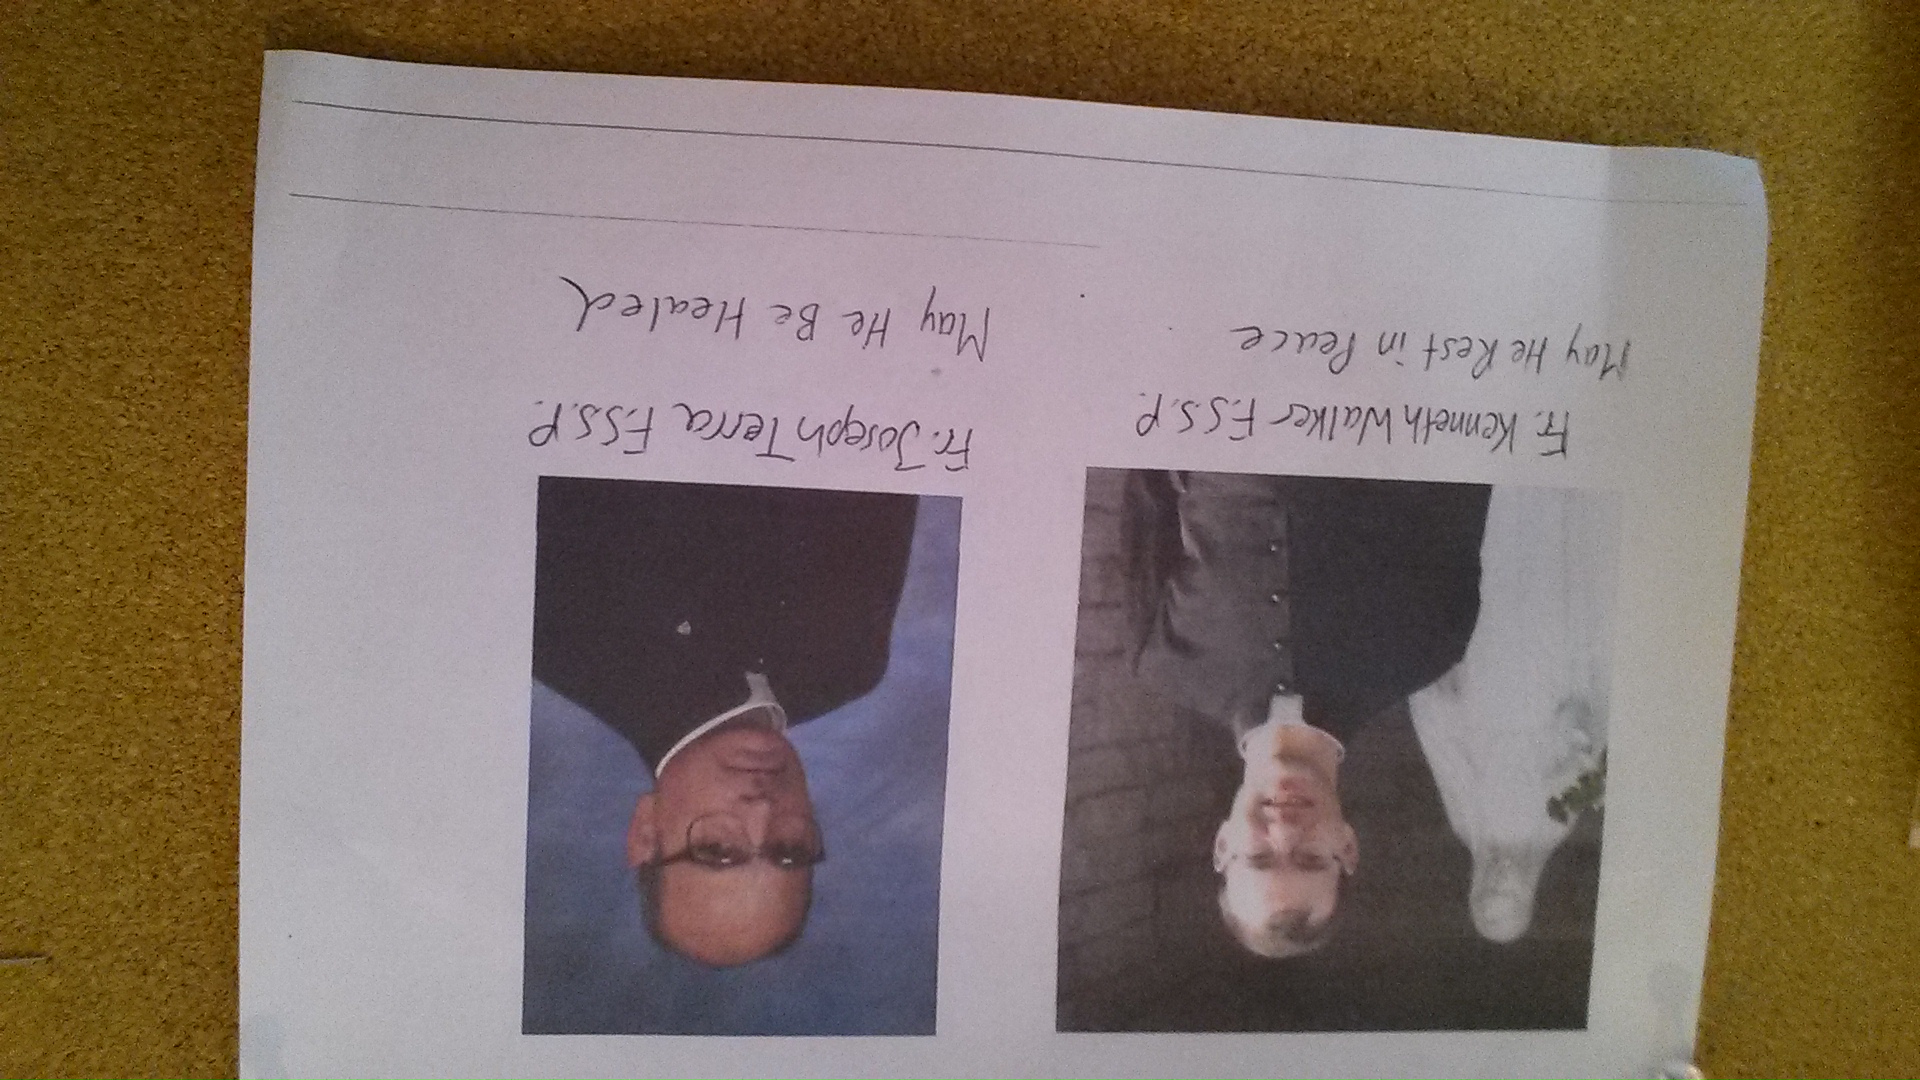 Fr. Kenneth Walker F.S.S.P.
May He Rest in Peace
Fr. Joseph Terra F.S.S.P.
May He Be Healed